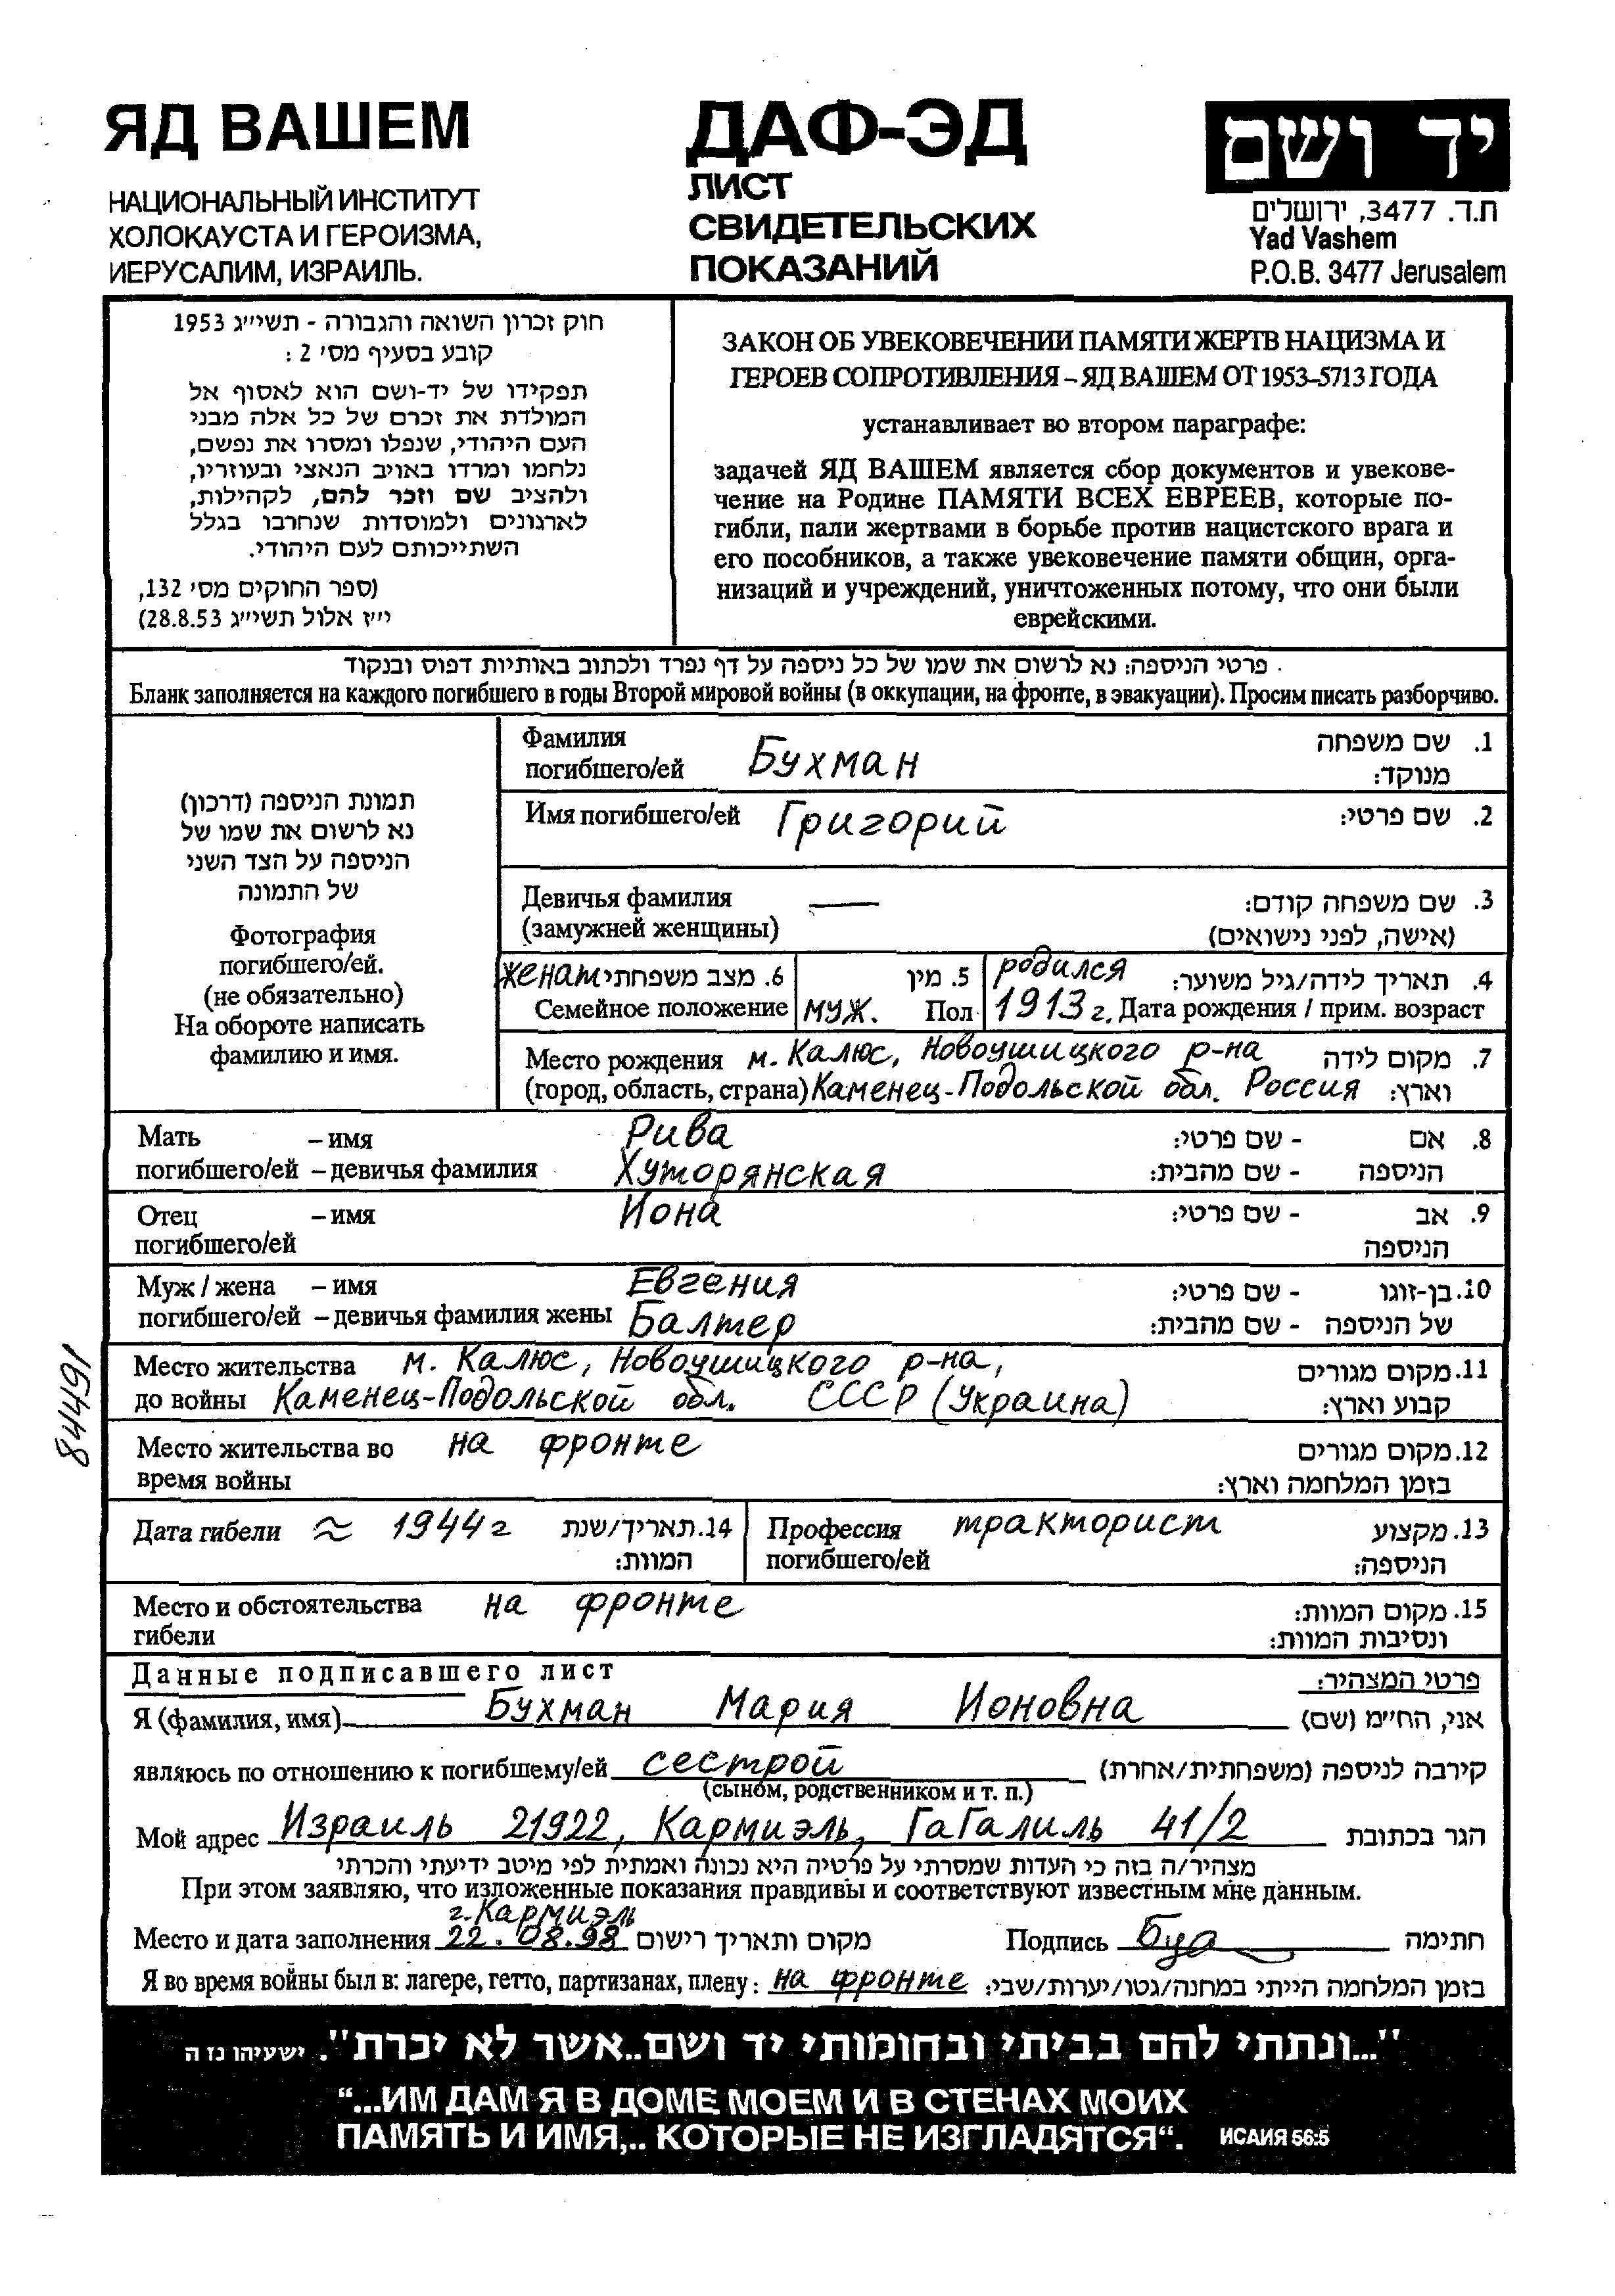 ЯД ВАШЕМ
НАЦИОНАЛЬНЫЙ ИНСТИТУТ
ХОЛОКАУСТА И ГЕРОИЗМА,
ИЕРУСАЛИМ, ИЗРАИЛЬ.
ДАФ-ЭД
ЛИСТ
СВИДЕТЕЛЬСКИХ
ПОКАЗАНИЙ
יד ושם
ת.ד. 3477, ירושלים
Yad Vashem
P.O.B. 3477 Jerusalem
חוק זכרון השואה והגבורה - תשי״ג 1953
קובע בסעיף מס׳ 2 :
תפקידו של יד-ושם הוא לאסוף אל
המולדת את זכרם של כל אלה מבני
העם היהודי, שנפלו ומסרו את נפשם,
נלחמו ומרדו באויב הנאצי ובעוזריו,
ולהציב שם וזכר להם, לקהילות,
לארגונים ולמוסדות שנחרבו בגלל
השתייכותם לעם היהודי.
(ספר החוקים מס׳ 132,
י״ז אלול תשי״ג 28.8.53)
ЗАКОН ОБ УВЕКОВЕЧЕНИИ ПАМЯТИ ЖЕРТВ НАЦИЗМА И
ГЕРОЕВ СОПРОТИВЛЕНИЯ – ЯД ВАШЕМ ОТ 1953-5713 ГОДА
устанавливает во втором параграфе:
задачей ЯД ВАШЕМ является сбор документов и увекове-
чение на Родине ПАМЯТИ ВСЕХ ЕВРЕЕВ, которые по-
гибли, пали жертвами в борьбе против нацистского врага и
его пособников, а также увековечение памяти общин, орга-
низаций и учреждений, уничтоженных потому, что они были
еврейскими.
פרטי הניספה: נא לרשום את שמו של כל ניספה על דף נפרד ולכתוב באותיות דפוס ובנקוד
Бланк заполняется на каждого погибшего в годы Второй мировой войны (в оккупации, на фронте, в эвакуации). Просим писать разборчиво.
תמונת הניספה (דרכון)
נא לרשום את שמו של
הניספה על הצד השני
של התמונה
Фотография
погибшего/ей.
(не обязательно)
На обороте написать
фамилию и имя.
Фамилия Бухман 1. שם משפחה
погибшего/ей מנוקד:
Имя погибшего/ей Григорий 2. שם פרטי:
Девичья фамилия — 3. שם משפחה קודם:
(замужней женщины) (אישה, לפני נישואים)
женат 6. מצב משפחתי 5. מין родился 4. תאריך לידה/גיל משוער:
Семейное положение муж. Пол 1913 г. Дата рождения / прим. возраст
Место рождения м. Калюс, Новоушицкого р-на 7. מקום לידה
(город, область, страна) Каменец-Подольской обл. Россия וארץ:
Мать – имя Рива 8. אם - שם פרטי:
погибшего/ей – девичья фамилия Хуторянская הניספה - שם מהבית:
Отец – имя Иона 9. אב - שם פרטי:
погибшего/ей הניספה
Муж / жена – имя Евгения 10. בן-זוגו - שם פרטי:
погибшего/ей – девичья фамилия жены Балтер של הניספה - שם מהבית:
Место жительства м. Калюс, Новоушицкого р-на, 11. מקום מגורים
до войны Каменец-Подольской обл. СССР (Украина) קבוע וארץ:
Место жительства во на фронте 12. מקום מגורים
время войны בזמן המלחמה וארץ:
Дата гибели ≈ 1944 г 14. תאריך/שנת Профессия тракторист 13. מקצוע
המוות: погибшего/ей הניספה:
Место и обстоятельства на фронте 15. מקום המוות:
гибели ונסיבות המוות:
Данные подписавшего лист פרטי המצהיר:
Я (фамилия, имя) Бухман Мария Ионовна אני, הח״מ (שם)
являюсь по отношению к погибшему/ей сестрой קירבה לניספה (משפחתית/אחרת)
(сыном, родственником и т. п.)
Мой адрес Израиль 21922, Кармиэль, ГаГалиль 41/2 הגר בכתובת
מצהיר/ה בזה כי העדות שמסרתי על פרטיה היא נכונה ואמתית לפי מיטב ידיעתי והכרתי
При этом заявляю, что изложенные показания правдивы и соответствуют известным мне данным.
г. Кармиэль
Место и дата заполнения 22.08.98 מקום ותאריך רישום Подпись חתימה
Я во время войны был в: лагере, гетто, партизанах, плену: на фронте בזמן המלחמה הייתי במחנה/גטו/יערות/שבי:
84491
"...ונתתי להם בביתי ובחומותי יד ושם..אשר לא יכרת". ישעיהו נז ה
“...ИМ ДАМ Я В ДОМЕ МОЕМ И В СТЕНАХ МОИХ
ПАМЯТЬ И ИМЯ,.. КОТОРЫЕ НЕ ИЗГЛАДЯТСЯ“. ИСАИЯ 56:5